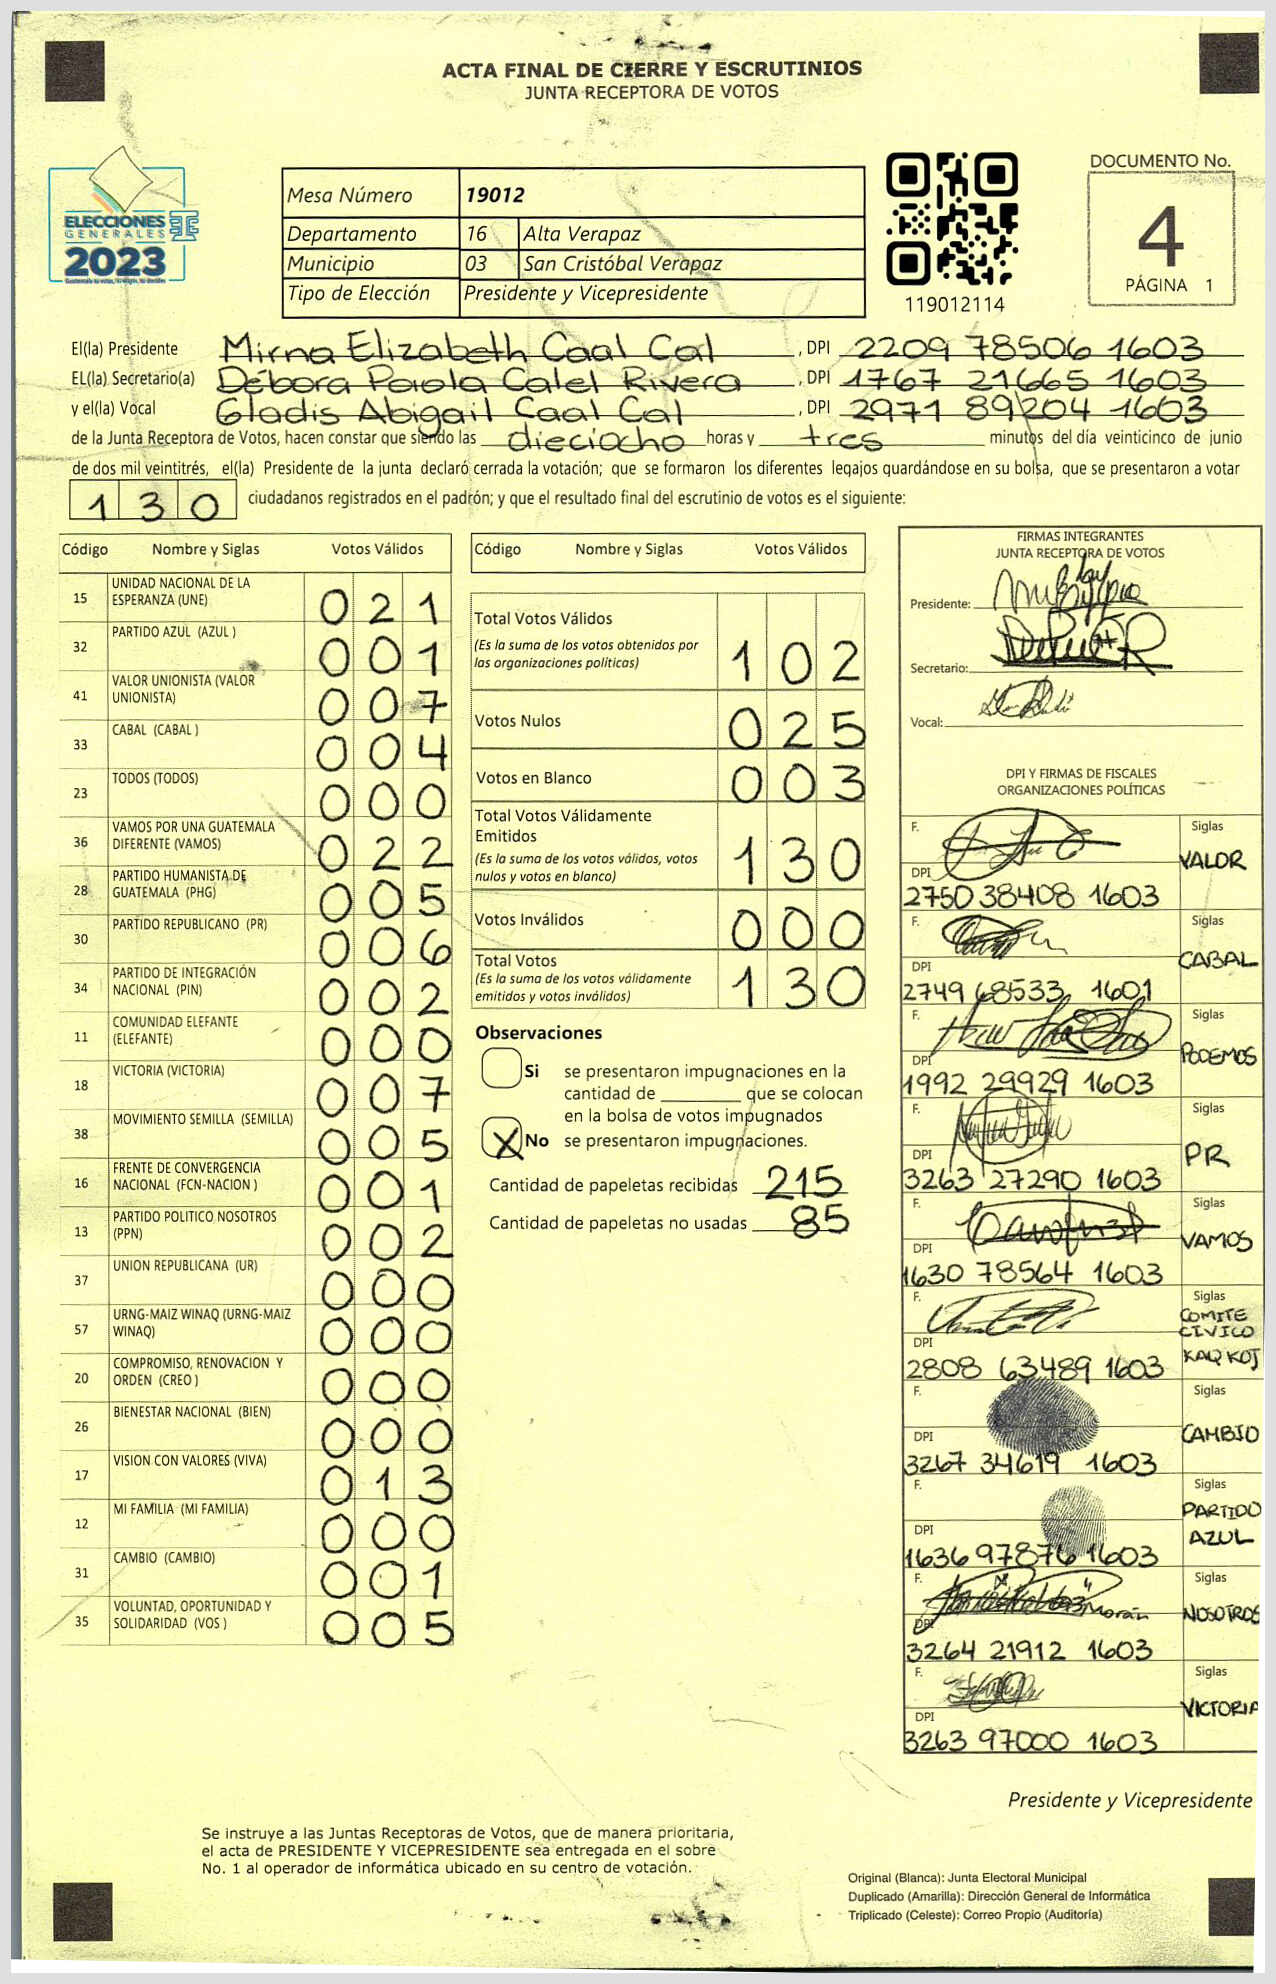 ACTA FINAL DE CIERRE Y ESCRUTINIOS
JUNTA RECEPTORA DE VOTOS
ELECCIONES
GENERALES
2023
Mesa Número 19012
Departamento 16 Alta Verapaz
Municipio 03 San Cristóbal Verapaz
Tipo de Elección Presidente y Vicepresidente
119012114
DOCUMENTO No.
4
PÁGINA 1
El(la) Presidente Mirna Elizabeth Caal Cal , DPI 2209 78506 1603
EL(la) Secretario(a) Débora Paola Calel Rivera , DPI 1767 21665 1603
y el(la) Vocal Gladis Abigail Caal Cal , DPI 2971 89204 1603
de la Junta Receptora de Votos, hacen constar que siendo las dieciocho horas y tres minutos del día veinticinco de junio
de dos mil veintitrés, el(la) Presidente de la junta declaró cerrada la votación; que se formaron los diferentes legajos guardándose en su bolsa, que se presentaron a votar
130 ciudadanos registrados en el padrón; y que el resultado final del escrutinio de votos es el siguiente:
Código Nombre y Siglas Votos Válidos
15 UNIDAD NACIONAL DE LA ESPERANZA (UNE) 021
32 PARTIDO AZUL (AZUL ) 001
41 VALOR UNIONISTA (VALOR UNIONISTA) 007
33 CABAL (CABAL ) 004
23 TODOS (TODOS) 000
36 VAMOS POR UNA GUATEMALA DIFERENTE (VAMOS) 022
28 PARTIDO HUMANISTA DE GUATEMALA (PHG) 005
30 PARTIDO REPUBLICANO (PR) 006
34 PARTIDO DE INTEGRACIÓN NACIONAL (PIN) 002
11 COMUNIDAD ELEFANTE (ELEFANTE) 000
18 VICTORIA (VICTORIA) 007
38 MOVIMIENTO SEMILLA (SEMILLA) 005
16 FRENTE DE CONVERGENCIA NACIONAL (FCN-NACION ) 001
13 PARTIDO POLITICO NOSOTROS (PPN) 002
37 UNION REPUBLICANA (UR) 000
57 URNG-MAIZ WINAQ (URNG-MAIZ WINAQ) 000
20 COMPROMISO, RENOVACION Y ORDEN (CREO ) 000
26 BIENESTAR NACIONAL (BIEN) 000
17 VISION CON VALORES (VIVA) 013
12 MI FAMILIA (MI FAMILIA) 000
31 CAMBIO (CAMBIO) 001
35 VOLUNTAD, OPORTUNIDAD Y SOLIDARIDAD (VOS ) 005
Código Nombre y Siglas Votos Válidos
Total Votos Válidos 102
(Es la suma de los votos obtenidos por
las organizaciones políticas)
Votos Nulos 025
Votos en Blanco 003
Total Votos Válidamente
Emitidos 130
(Es la suma de los votos válidos, votos
nulos y votos en blanco)
Votos Inválidos 000
Total Votos 130
(Es la suma de los votos válidamente
emitidos y votos inválidos)
Observaciones
Si se presentaron impugnaciones en la
cantidad de ________ que se colocan
en la bolsa de votos impugnados
X No se presentaron impugnaciones.
Cantidad de papeletas recibidas 215
Cantidad de papeletas no usadas 85
FIRMAS INTEGRANTES
JUNTA RECEPTORA DE VOTOS
Presidente:
Secretario:
Vocal:
DPI Y FIRMAS DE FISCALES
ORGANIZACIONES POLÍTICAS
F. Siglas VALOR
DPI 2750 38408 1603
F. Siglas CABAL
DPI 2749 68533 1601
F. Siglas PODEMOS
DPI 1992 29929 1603
F. Siglas PR
DPI 3263 27290 1603
F. Siglas VAMOS
DPI 1630 78564 1603
F. Siglas COMITE CIVICO KAQ KOJ
DPI 2808 63489 1603
F. Siglas CAMBIO
DPI 3267 34619 1603
F. Siglas PARTIDO AZUL
DPI 1636 97876 1603
F. Morán Siglas NOSOTROS
DPI 3264 21912 1603
F. Siglas VICTORIA
DPI 3263 97000 1603
Presidente y Vicepresidente
Se instruye a las Juntas Receptoras de Votos, que de manera prioritaria,
el acta de PRESIDENTE Y VICEPRESIDENTE sea entregada en el sobre
No. 1 al operador de informática ubicado en su centro de votación.
Original (Blanca): Junta Electoral Municipal
Duplicado (Amarilla): Dirección General de Informática
Triplicado (Celeste): Correo Propio (Auditoría)